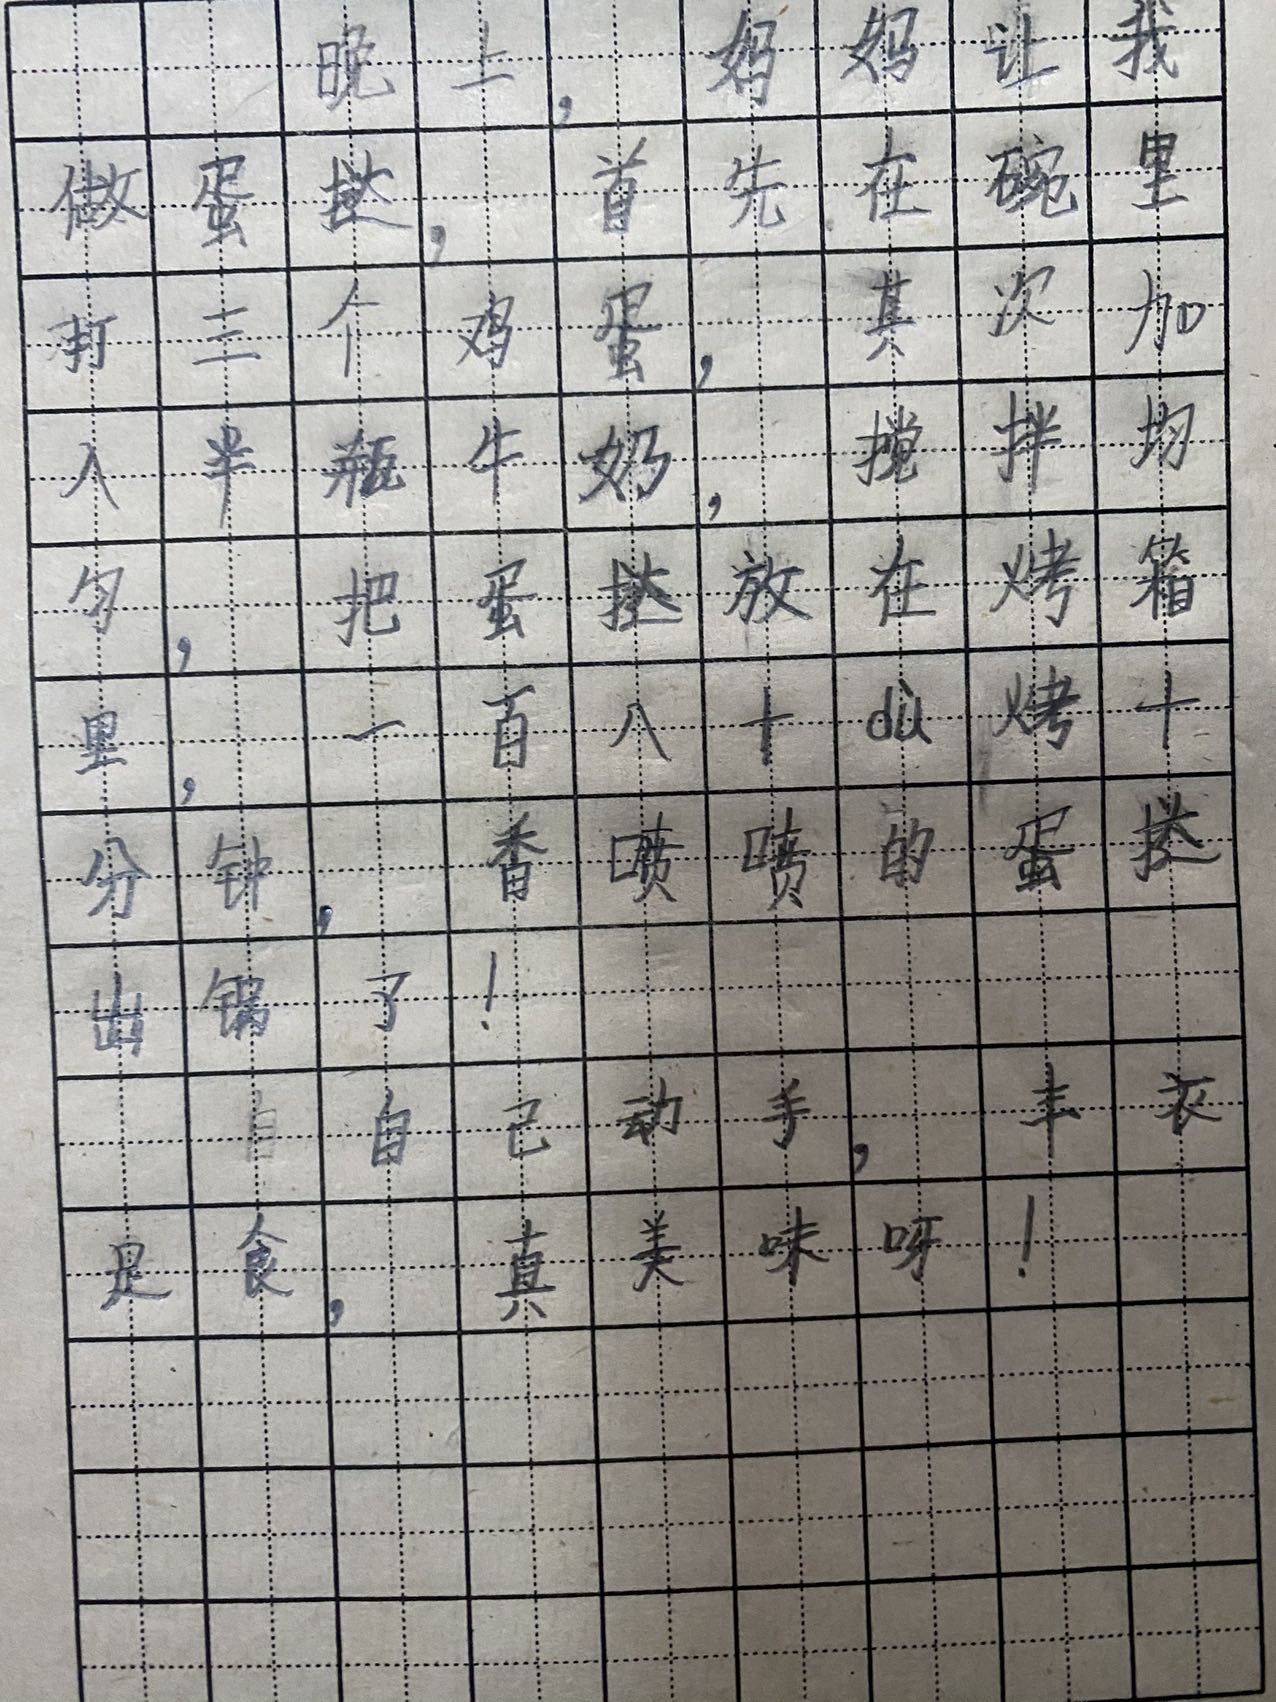 晚上，妈妈让我
做蛋挞，首先在碗里
打三个鸡蛋，其次加
入半瓶牛奶，搅拌均
匀，把蛋挞放在烤箱
里，一百八十dù烤十
分钟，香喷喷的蛋挞
出锅了！
自己动手，丰衣
是食，真美味呀！